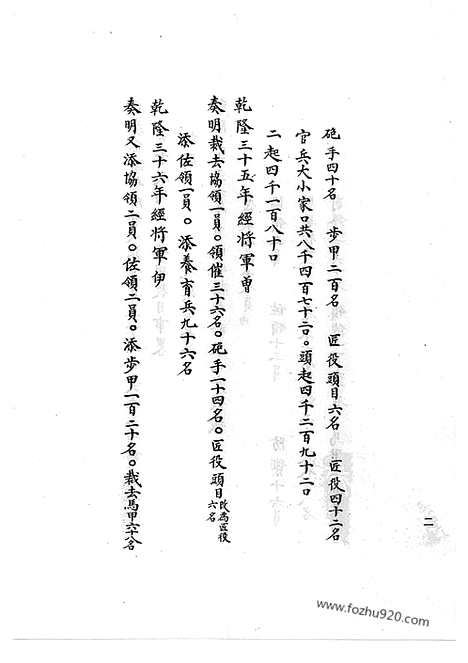 砲手四十名 步甲二百名 匠役頭目六名 匠役四十二名
官兵大小家口共八千四百七十二口。頭起四千二百九十二口
二起四千一百八十口
乾隆三十五年經將軍曽
奏明裁去協領一員。領催三十六名。砲手一十四名。匠役頭目六名改為匠役
添佐領一員。添養育兵九十六名
乾隆三十六年經將軍伊
奏明又添協領二員。佐領二員。添步甲一百二十名。裁去馬甲六十八名
二
www.fozhu920.com